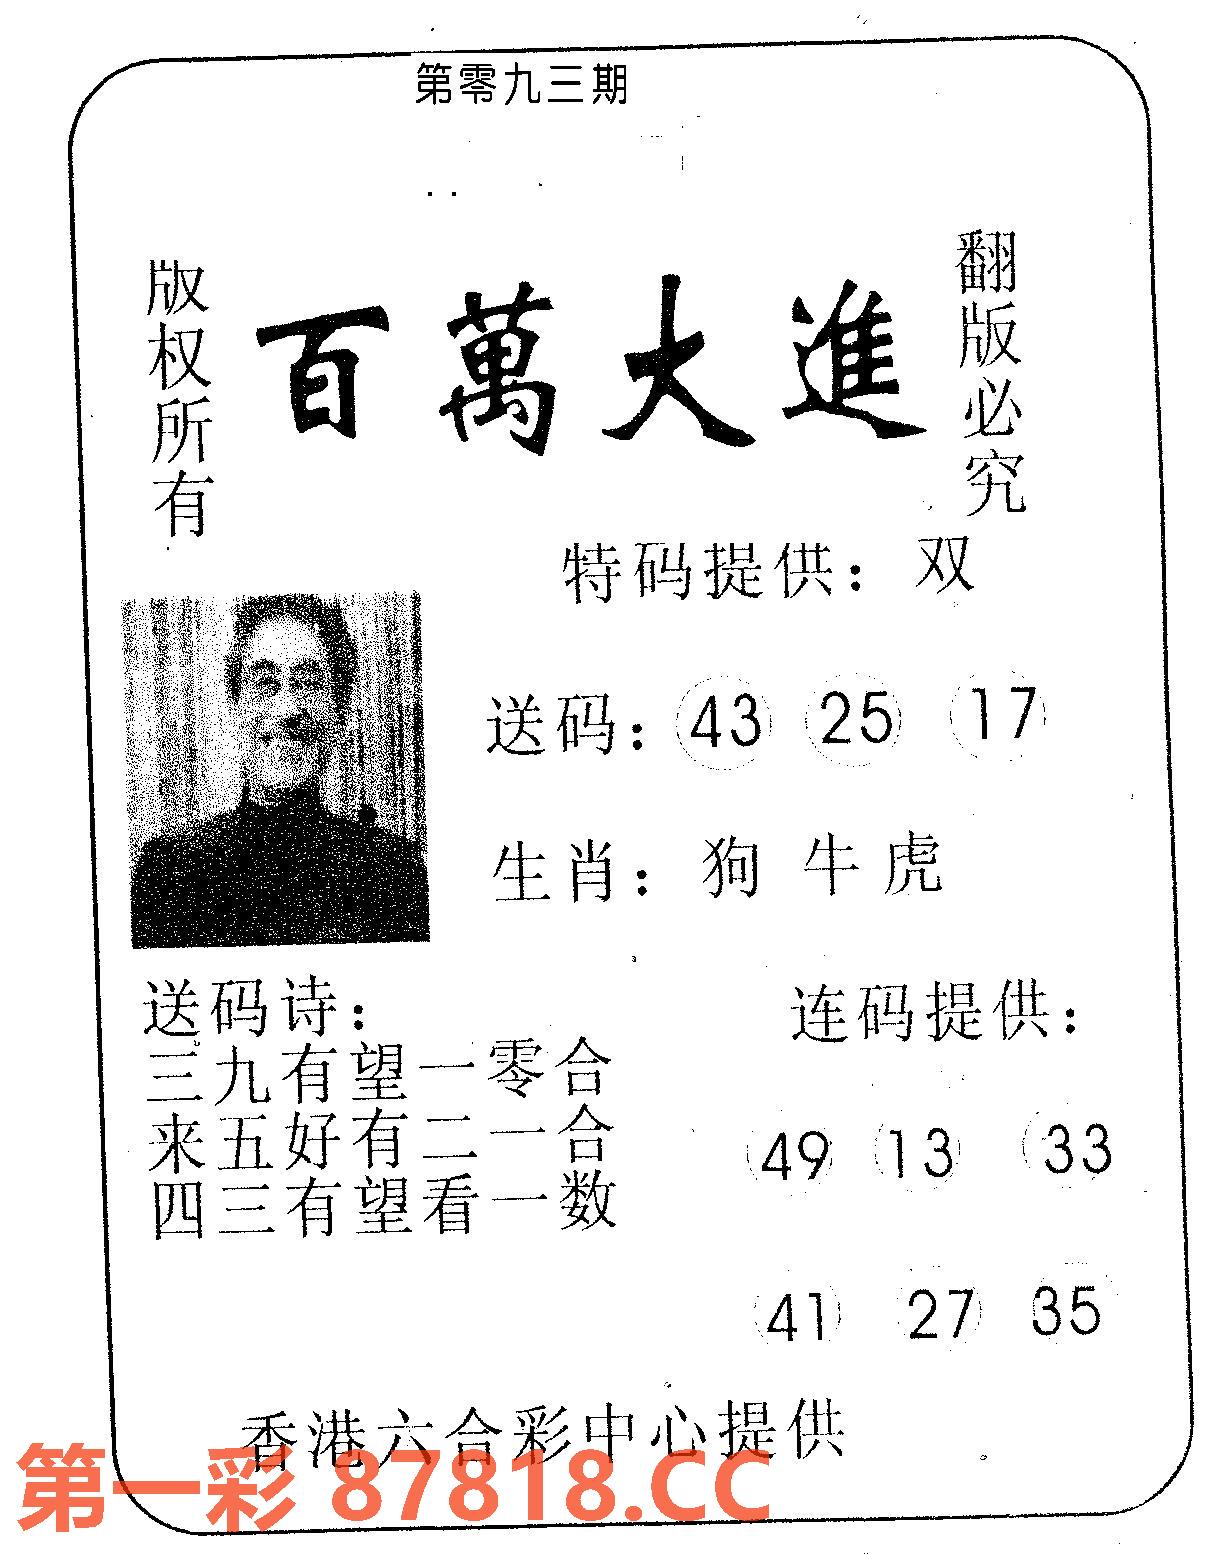 第零九三期
版权所有
百萬大進
翻版必究
特码提供：双
送码：43 25 17
生肖：狗 牛 虎
送码诗：
三九有望一零合
来五好有二一合
四三有望看一数
连码提供：
49 13 33
41 27 35
香港六合彩中心提供
第一彩 87818.CC